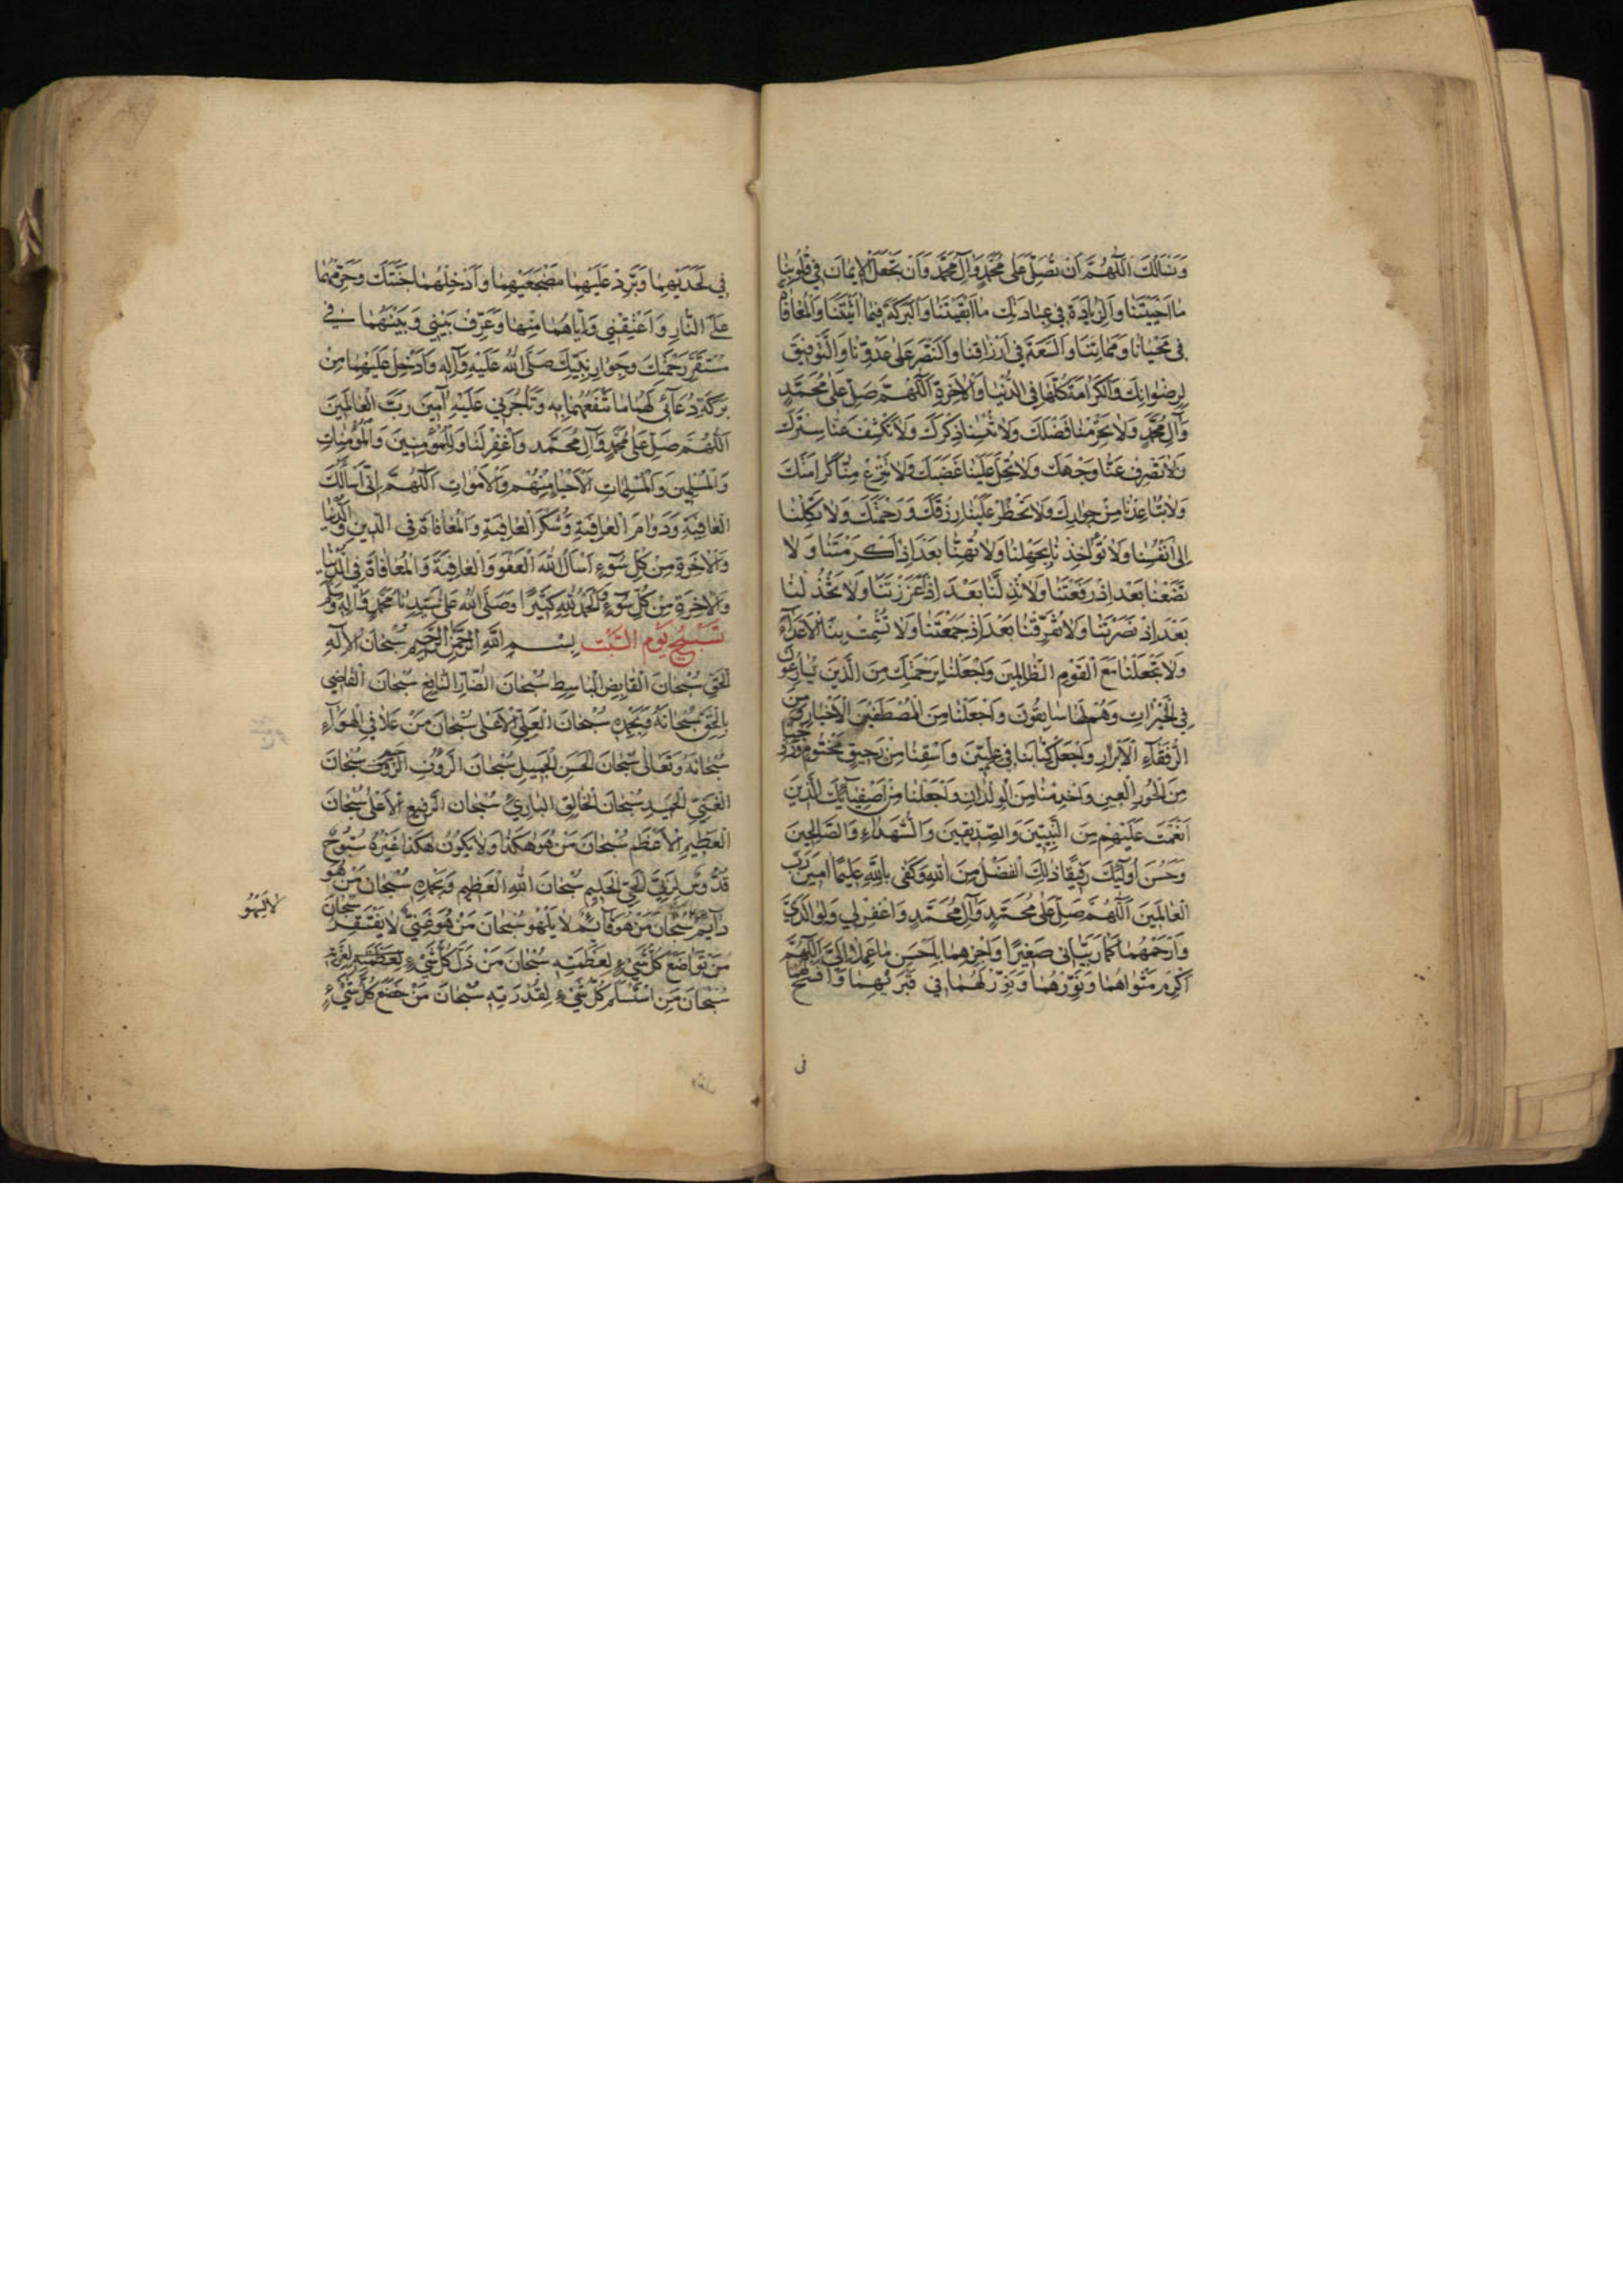 وَنَسْأَلُكَ اَللّٰهُمَّ اَنْ تُصَلِّيَ عَلٰى مُحَمَّدٍ وَآلِ مُحَمَّدٍ وَاَنْ تَجْعَلَ الْاِيمَانَ فِي قُلُوبِنَا
مَا اَحْيَيْتَنَا وَالزِّيَادَةَ فِي عِبَادَتِكَ مَا اَبْقَيْتَنَا وَالْبَرَكَةَ فِيمَا اٰتَيْتَنَا وَالْمُعَافَاةَ
فِي مَحْيَانَا وَمَمَاتِنَا وَالسَّعَةَ فِي اَرْزَاقِنَا وَالنَّصْرَ عَلٰى عَدُوِّنَا وَالتَّوْفِيقَ
لِرِضْوَانِكَ وَالْكَرَامَةَ كُلَّهَا فِي الدُّنْيَا وَالْاٰخِرَةِ اَللّٰهُمَّ صَلِّ عَلٰى مُحَمَّدٍ
وَآلِ مُحَمَّدٍ وَلَا تَحْرِمْنَا فَضْلَكَ وَلَا تُنْسِنَا ذِكْرَكَ وَلَا تَكْشِفْ عَنَّا سِتْرَكَ
وَلَا تَصْرِفْ عَنَّا وَجْهَكَ وَلَا تُحِلَّ عَلَيْنَا غَضَبَكَ وَلَا تَنْزِعْ مِنَّا كَرَامَتَكَ
وَلَا تُبَاعِدْنَا مِنْ جِوَارِكَ وَلَا تَحْظُرْ عَلَيْنَا رِزْقَكَ وَرَحْمَتَكَ وَلَا تَكِلْنَا
اِلٰى اَنْفُسِنَا وَلَا تُؤَاخِذْنَا بِجَهْلِنَا وَلَا تُهِنَّا بَعْدَ اِذْ اَكْرَمْتَنَا وَلَا
تَضَعْنَا بَعْدَ اِذْ رَفَعْتَنَا وَلَا تُذِلَّنَا بَعْدَ اِذْ اَعْزَزْتَنَا وَلَا تَخْذُلْنَا
بَعْدَ اِذْ نَصَرْتَنَا وَلَا تُفَرِّقْنَا بَعْدَ اِذْ جَمَعْتَنَا وَلَا تُشْمِتْ بِنَا الْاَعْدَآءَ
وَلَا تَجْعَلْنَا مَعَ الْقَوْمِ الظَّالِمِينَ وَاجْعَلْنَا بِرَحْمَتِكَ مِنَ الَّذِينَ يُسَارِعُونَ
فِي الْخَيْرَاتِ وَهُمْ لَهَا سَابِقُونَ وَاجْعَلْنَا مِنَ الْمُصْطَفَيْنَ الْاَخْيَارِ وَمِنَ
الرُّفَقَآءِ الْاَبْرَارِ وَاجْعَلْ كِتَابَنَا فِي عِلِّيِّينَ وَاسْقِنَا مِنْ رَحِيقٍ مَخْتُومٍ وَزَوِّجْنَا
مِنَ الْحُورِ الْعِينِ وَاخْدِمْنَا مِنَ الْوِلْدَانِ وَاجْعَلْنَا مِنْ اَصْفِيَآئِكَ الَّذِينَ
اَنْعَمْتَ عَلَيْهِمْ مِنَ النَّبِيِّينَ وَالصِّدِّيقِينَ وَالشُّهَدَاءِ وَالصَّالِحِينَ
وَحَسُنَ اُولٰٓئِكَ رَفِيقًا ذٰلِكَ الْفَضْلُ مِنَ اللّٰهِ وَكَفٰى بِاللّٰهِ عَلِيمًا اٰمِينَ رَبَّ
الْعَالَمِينَ اَللّٰهُمَّ صَلِّ عَلٰى مُحَمَّدٍ وَآلِ مُحَمَّدٍ وَاغْفِرْ لِي وَلِوَالِدَيَّ
وَارْحَمْهُمَا كَمَا رَبَّيَانِي صَغِيرًا وَاجْزِهِمَا بِاَحْسَنِ مَا عَمِلَا اِلَيَّ اَللّٰهُمَّ
اَكْرِمْ مَثْوَاهُمَا وَنَوِّرْهُمَا وَنَوِّرْ لَهُمَا فِي قَبْرَيْهِمَا وَافْسَحْ لَهُمَا
فى
فِي لَحْدَيْهِمَا وَبَرِّدْ عَلَيْهِمَا مَضْجَعَيْهِمَا وَاَدْخِلْهُمَا جَنَّتَكَ وَحَرِّمْهُمَا
عَلَى النَّارِ وَاَعْتِقْنِي وَاِيَّاهُمَا مِنْهَا وَعَرِّفْ بَيْنِي وَبَيْنَهُمَا فِي
مُسْتَقَرِّ رَحْمَتِكَ وَجِوَارِ نَبِيِّكَ صَلَّى اللّٰهُ عَلَيْهِ وَآلِهِ وَاَدْخِلْ عَلَيْهِمَا مِنْ
بَرَكَةِ دُعَآئِي لَهُمَا مَا تَنْفَعُهُمَا بِهِ وَتَأْجُرُنِي عَلَيْهِ اٰمِينَ رَبَّ الْعَالَمِينَ
اَللّٰهُمَّ صَلِّ عَلٰى مُحَمَّدٍ وَآلِ مُحَمَّدٍ وَاغْفِرْ لَنَا وَلِلْمُؤْمِنِينَ وَالْمُؤْمِنَاتِ
وَالْمُسْلِمِينَ وَالْمُسْلِمَاتِ الْاَحْيَاءِ مِنْهُمْ وَالْاَمْوَاتِ اَللّٰهُمَّ اِنِّي اَسْأَلُكَ
الْعَافِيَةَ وَدَوَامَ الْعَافِيَةِ وَشُكْرَ الْعَافِيَةِ وَالْمُعَافَاةَ فِي الدِّينِ وَالدُّنْيَا
وَالْاٰخِرَةِ مِنْ كُلِّ سُوٓءٍ اَسْأَلُ اللّٰهَ الْعَفْوَ وَالْعَافِيَةَ وَالْمُعَافَاةَ فِي الدُّنْيَا
وَالْاٰخِرَةِ مِنْ كُلِّ سُوٓءٍ وَالْحَمْدُ لِلّٰهِ كَثِيرًا وَصَلَّى اللّٰهُ عَلٰى سَيِّدِنَا مُحَمَّدٍ وَآلِهِ وَسَلَّمَ
تَسْبِيحُ يَوْمِ السَّبْتِ بِسْمِ اللّٰهِ الرَّحْمٰنِ الرَّحِيمِ سُبْحَانَ الْاِلٰهِ
الْحَقِّ سُبْحَانَ الْقَابِضِ الْبَاسِطِ سُبْحَانَ الضَّآرِّ النَّافِعِ سُبْحَانَ الْقَاضِي
بِالْحَقِّ سُبْحَانَهُ وَبِحَمْدِهِ سُبْحَانَ الْعَلِيِّ الْاَعْلٰى سُبْحَانَ مَنْ عَلَا فِي الْهَوَآءِ
سُبْحَانَهُ وَتَعَالٰى سُبْحَانَ الْحَسَنِ الْجَمِيلِ سُبْحَانَ الرَّؤُفِ الرَّحِيمِ سُبْحَانَ
الْغَنِيِّ الْحَمِيدِ سُبْحَانَ الْخَالِقِ الْبَارِئِ سُبْحَانَ الرَّفِيعِ الْاَعْلٰى سُبْحَانَ
الْعَظِيمِ الْاَعْظَمِ سُبْحَانَ مَنْ هُوَ هٰكَذَا وَلَا يَكُونُ هٰكَذَا غَيْرُهُ سُبُّوحٌ
قُدُّوسٌ لِرَبِّيَ الْحَيِّ الْحَلِيمِ سُبْحَانَ اللّٰهِ الْعَظِيمِ وَبِحَمْدِهِ سُبْحَانَ مَنْ هُوَ
دَآئِمٌ سُبْحَانَ مَنْ هُوَ قَآئِمٌ لَا يَلْهُو سُبْحَانَ مَنْ هُوَ غَنِيٌّ لَا يَفْتَقِرُ سُبْحَانَ
لا يسهو
مَنْ تَوَاضَعَ كُلُّ شَيْءٍ لِعَظَمَتِهِ سُبْحَانَ مَنْ ذَلَّ كُلُّ شَيْءٍ لِعِزَّتِهِ
سُبْحَانَ مَنِ اسْتَسْلَمَ كُلُّ شَيْءٍ لِقُدْرَتِهِ سُبْحَانَ مَنْ خَضَعَ كُلُّ شَيْءٍ